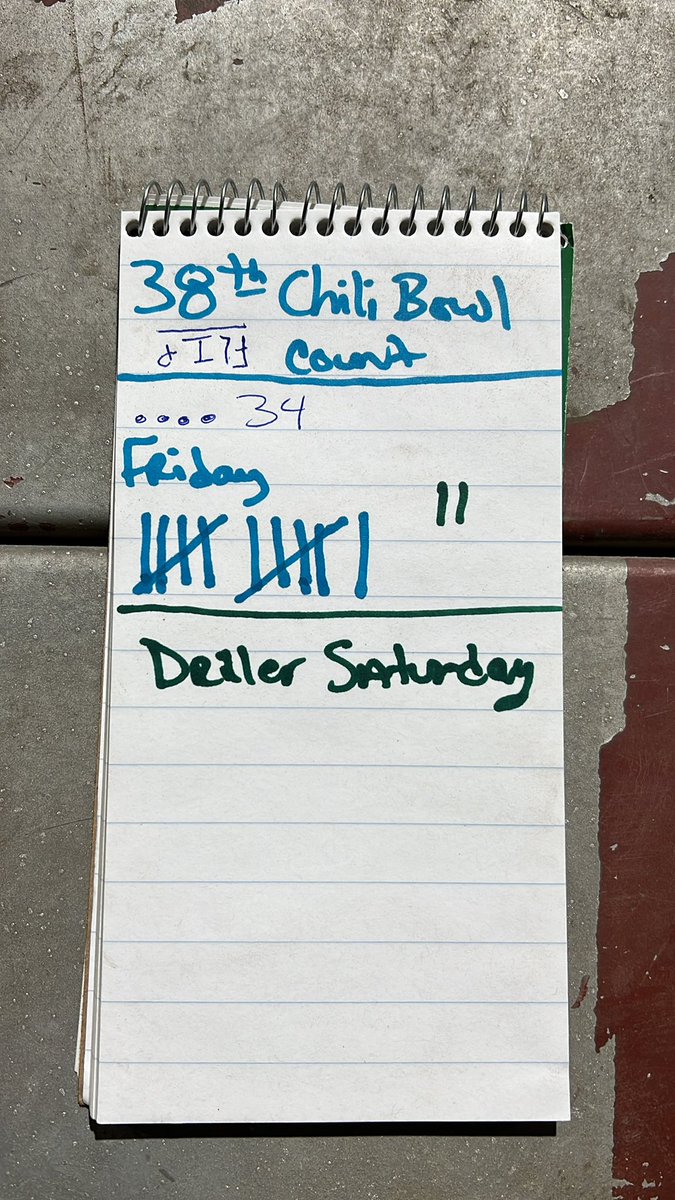 38th Chili Bowl
Count
.... 34
Friday
11
Dealer Saturday